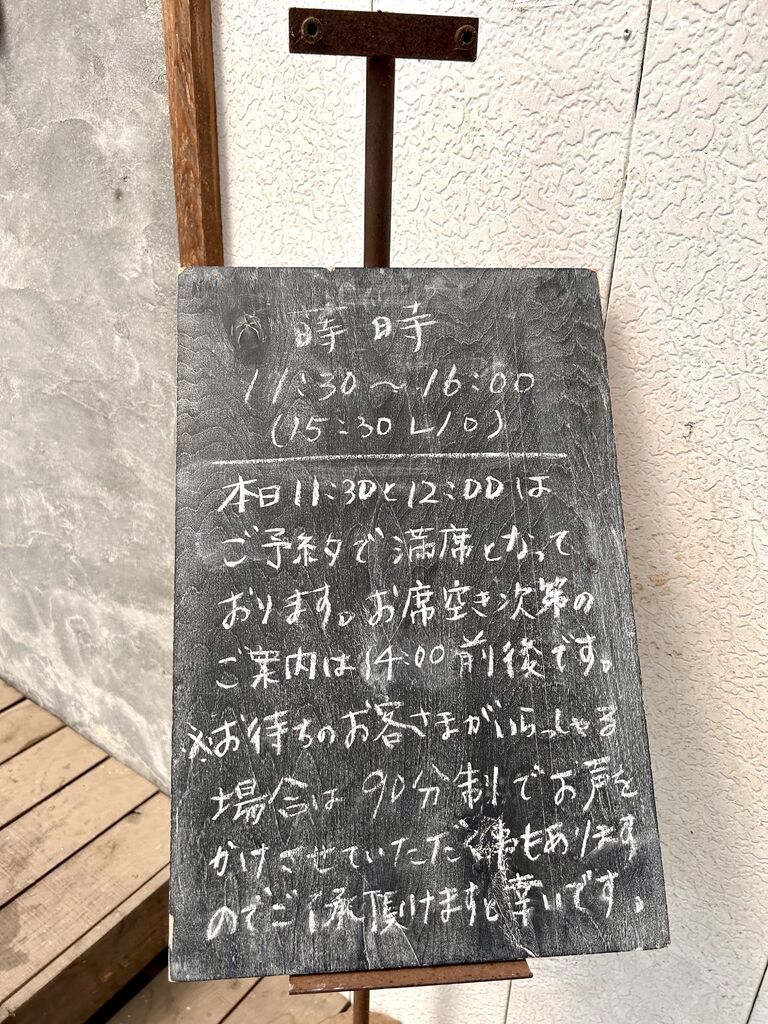 時時
11:30〜16:00
(15:30 L/O)
本日11:30と12:00は
ご予約で満席となって
おります。お席空き次第の
ご案内は14:00前後です。
※お待ちのお客さまがいらっしゃる
場合は90分制でお声を
かけさせていただく事もあります
のでご了承頂けますと幸いです。